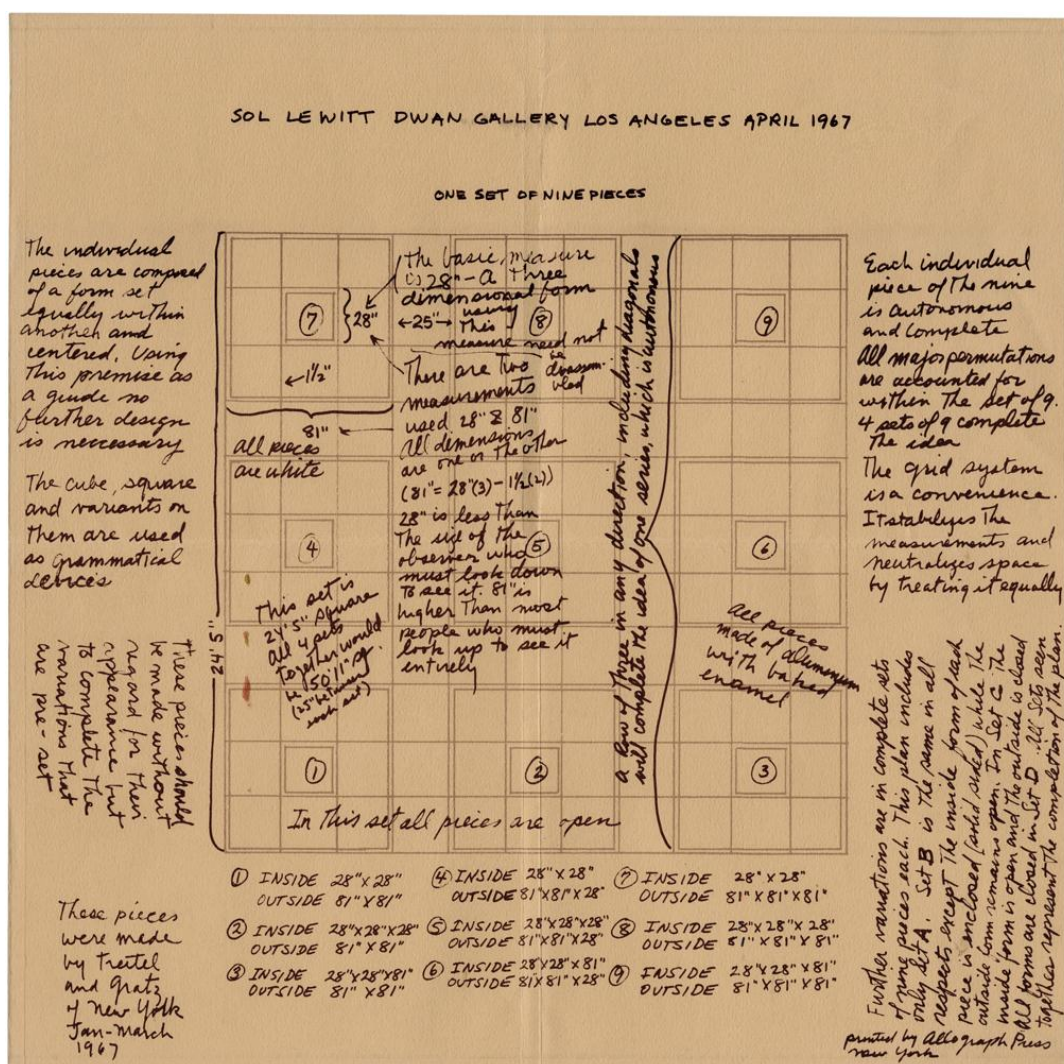 SOL LEWITT DWAN GALLERY LOS ANGELES APRIL 1967
ONE SET OF NINE PIECES
The individual
pieces are composed
of a form set
equally within
another and
centered. Using
This premise as
a guide no
further design
is neccessary
The cube, square
and variants on
Them are used
as grammatical
devices
These pieces should
be made without
regard for Their
appearance but
to complete The
variations That
are pre-set
These pieces
were made
by Treitel
and Gratz
of New York
Jan-March
1967
24'5"
7
28"
1½"
81"
all pieces
are white
The basic measure
is 28" - A Three
dimensional form
using
←25"→ This 8
measure need not
be
disassem-
bled
There are Two
measurements
used 28" & 81"
All dimensions
are one or The other
(81" = 28"(3) - 1½(2))
28" is less Than
The size of the
observer who
must look down
To see it. 81" is
higher Than most
people who must
look up to see it
entirely
4
5
This set is
24'5" square
All 4 sets
together would
be 50'11" sq.
(25" between
each set)
a row of Three in any direction, including diagonals
will complete the idea of one series, which is autonomous
9
6
all pieces
made of aluminum
with baked
enamel
1
2
3
In This set all pieces are open
Each individual
piece of The nine
is autonomous
and complete
All major permutations
are accounted for
within The set of 9.
4 sets of 9 complete
The idea
The grid system
is a convenience.
It stabilizes The
measurements and
neutralizes space
by treating it equally
Further variations are in complete sets
of nine pieces each. This plan includes
only set A. Set B is The same in all
respects except The inside form of each
piece is enclosed (solid sided) while The
outside form remains open. In Set C The
inside form is open and The outside is closed
All forms are closed in Set D. All Sets seen
together represent the completion of the plan.
printed by Allograph Press
New York
1 INSIDE 28" X 28"
OUTSIDE 81" X 81"
2 INSIDE 28"X28"X28"
OUTSIDE 81" X 81"
3 INSIDE 28"X28"X81"
OUTSIDE 81" X 81"
4 INSIDE 28" X 28"
OUTSIDE 81"X81"X28"
5 INSIDE 28"X28"X28"
OUTSIDE 81"X81"X28"
6 INSIDE 28"X28"X81"
OUTSIDE 81"X81"X28"
7 INSIDE 28" X 28"
OUTSIDE 81"X81"X81"
8 INSIDE 28"X28"X28"
OUTSIDE 81"X81"X81"
9 INSIDE 28"X28"X81"
OUTSIDE 81"X81"X81"